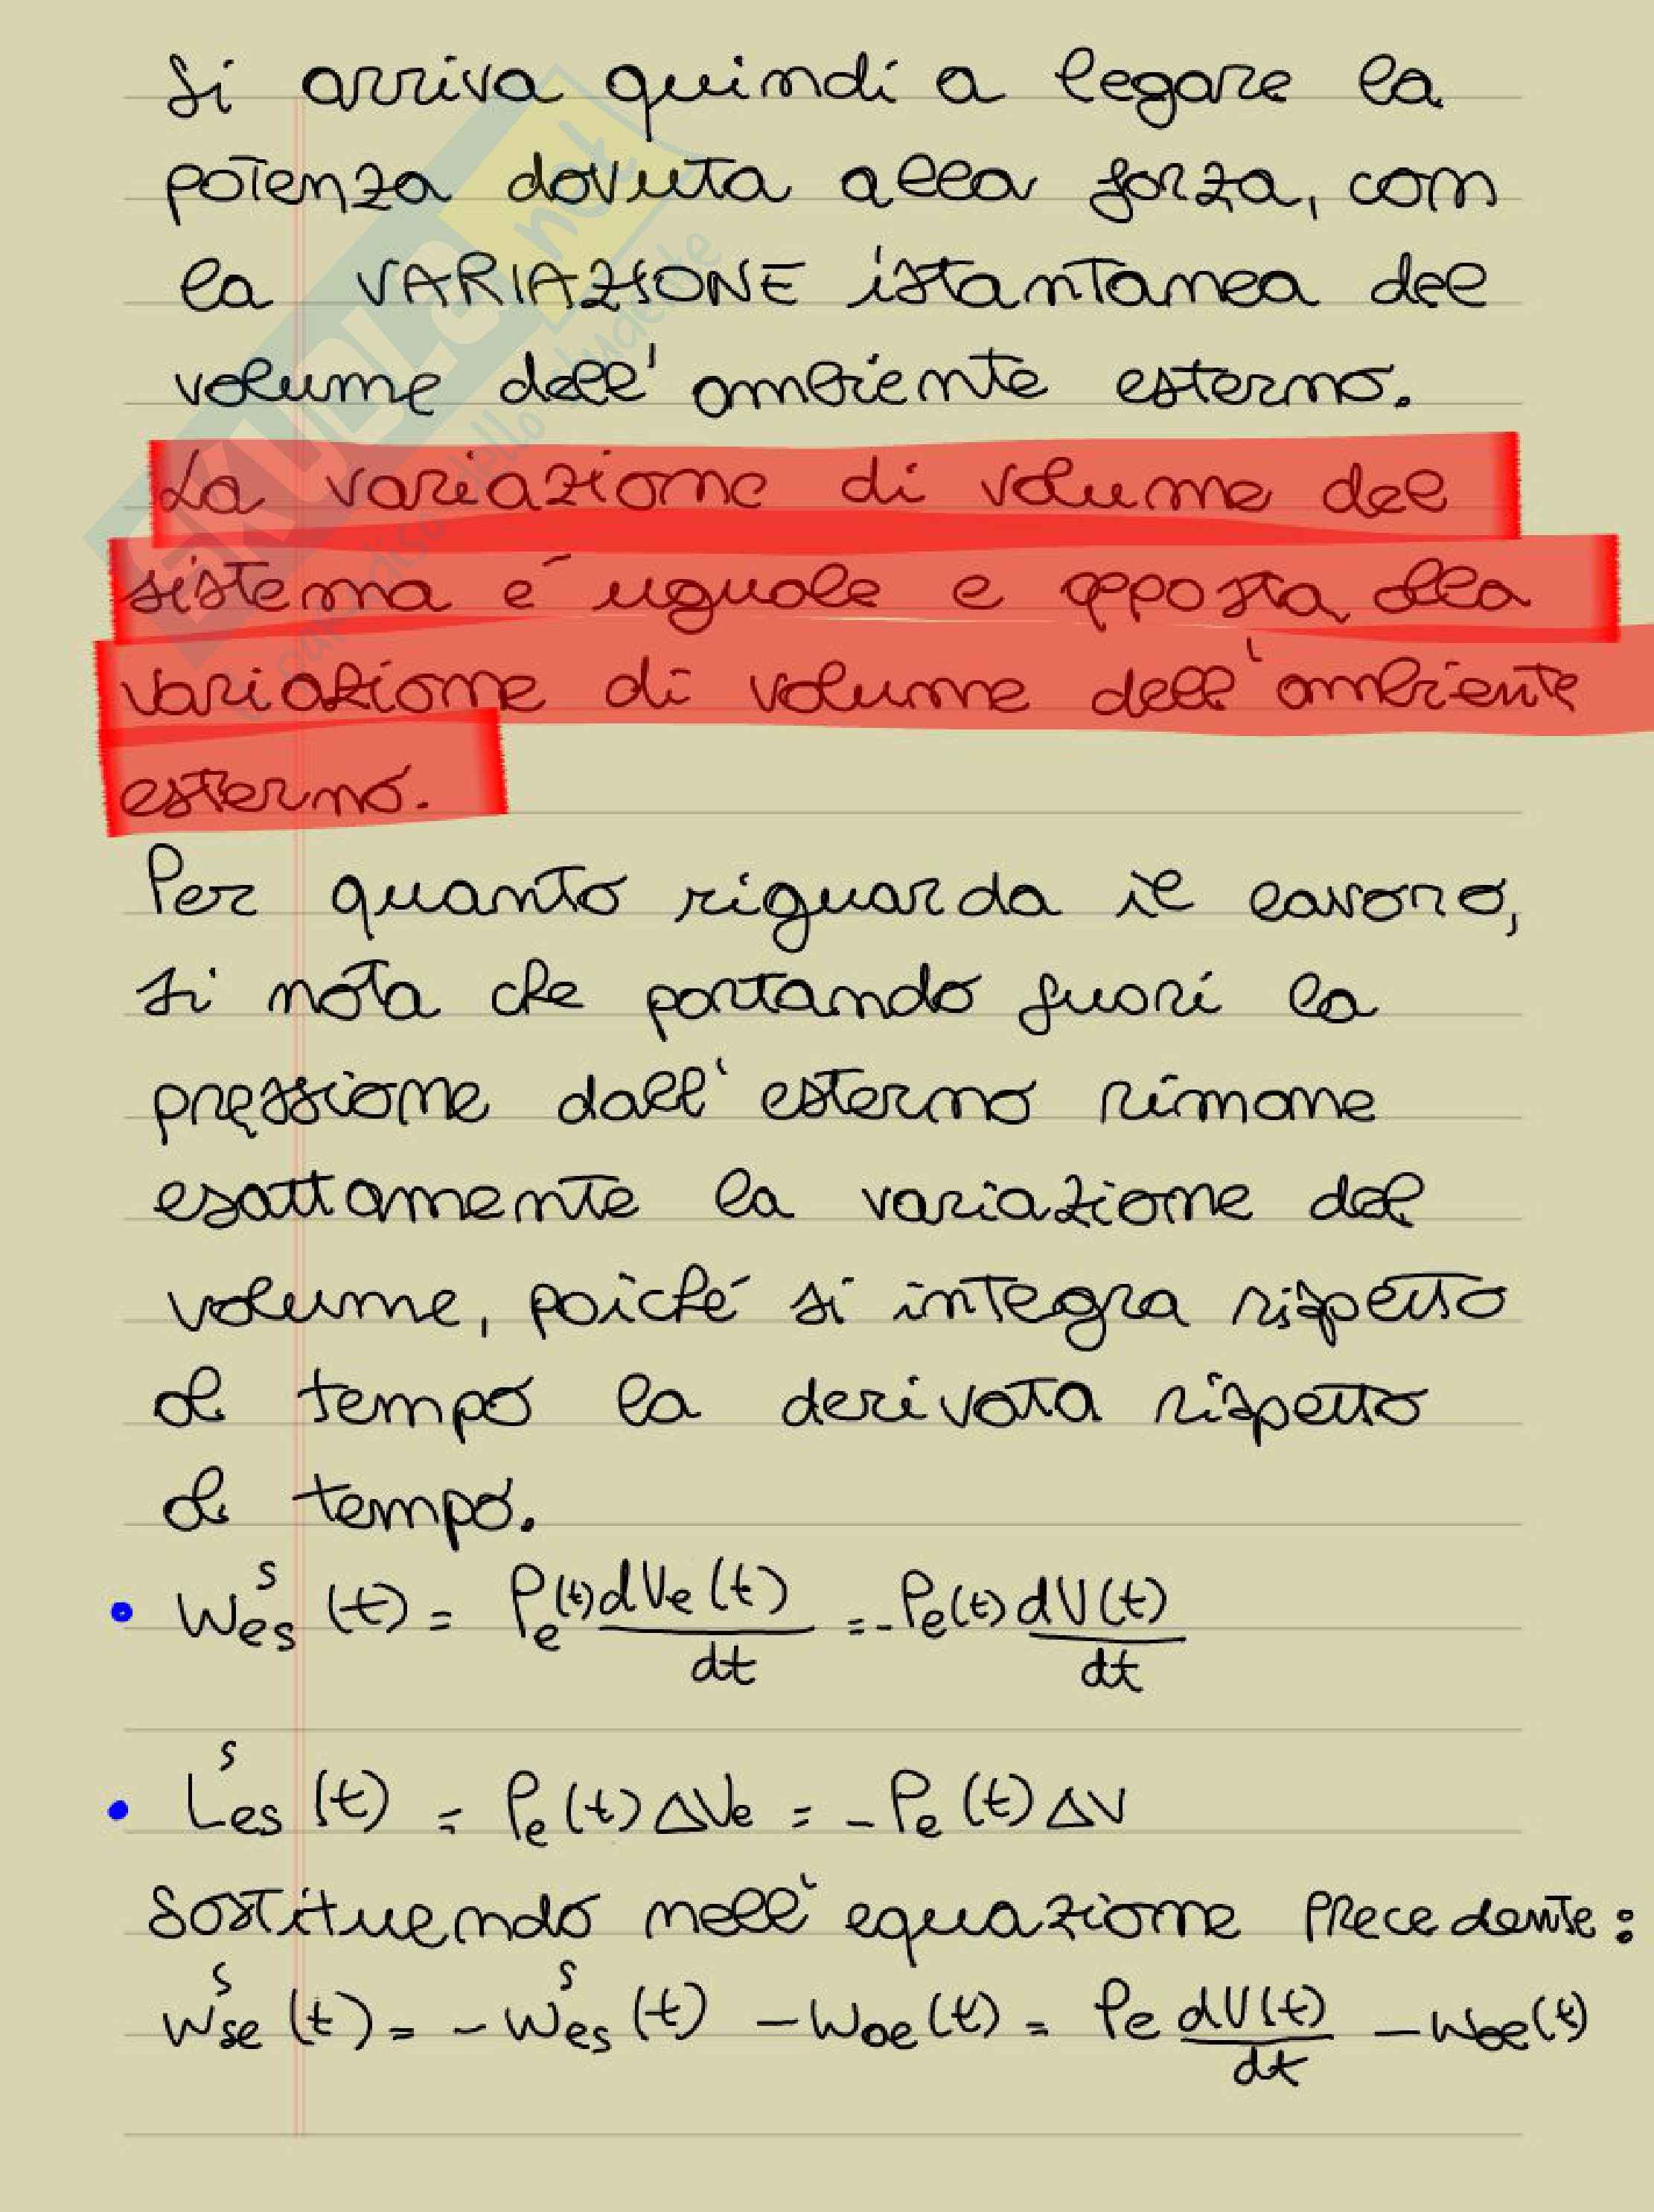 Si arriva quindi a legare la
potenza dovuta alla forza, con
la VARIAZIONE istantanea del
volume dell' ambiente esterno.
La variazione di volume del
sistema é uguale e opposta alla
variazione di volume dell'ambiente
esterno.
Per quanto riguarda il lavoro,
si nota che portando fuori la
pressione dall' esterno rimane
esattamente la variazione del
volume, poiché si integra rispetto
al tempo la derivata rispetto
al tempo.
• W^s_es (t) = P_e(t) dV_e(t)/dt = -P_e(t) dV(t)/dt
• L^s_es (t) = P_e(t) ΔV_e = -P_e(t) ΔV
Sostituendo nell' equazione precedente:
W^s_se (t) = - W^s_es (t) - W_oe(t) = P_e dV(t)/dt - W_oe(t)
SKUOLA.net
paradiso dello studente